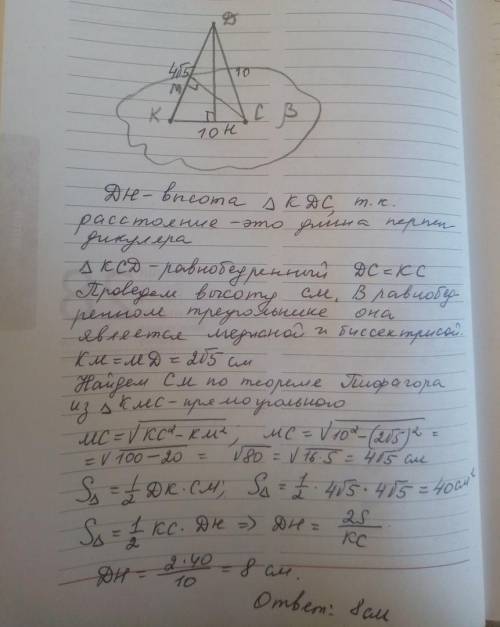 D
4√5
10
M
K
C
β
10
H
DH - высота △KDC, т.к.
расстояние - это длина перпен
дикуляра
△KCD - равнобедренный DC = KC
Проведем высоту CM. В равнобед-
ренном треугольнике она
является медианой и биссектрисой.
KM = MD = 2√5 см
Найдем CM по теореме Пифагора
из △KMC - прямоугольного
MC = √KC² - KM²; MC = √10² - (2√5)² =
= √100 - 20 = √80 = √16·5 = 4√5 см
S△ = 1/2 DK · CM; S△ = 1/2 · 4√5 · 4√5 = 40 см²
S△ = 1/2 KC · DH => DH = 2S/KC
DH = 2·40/10 = 8 см.
Ответ: 8 см